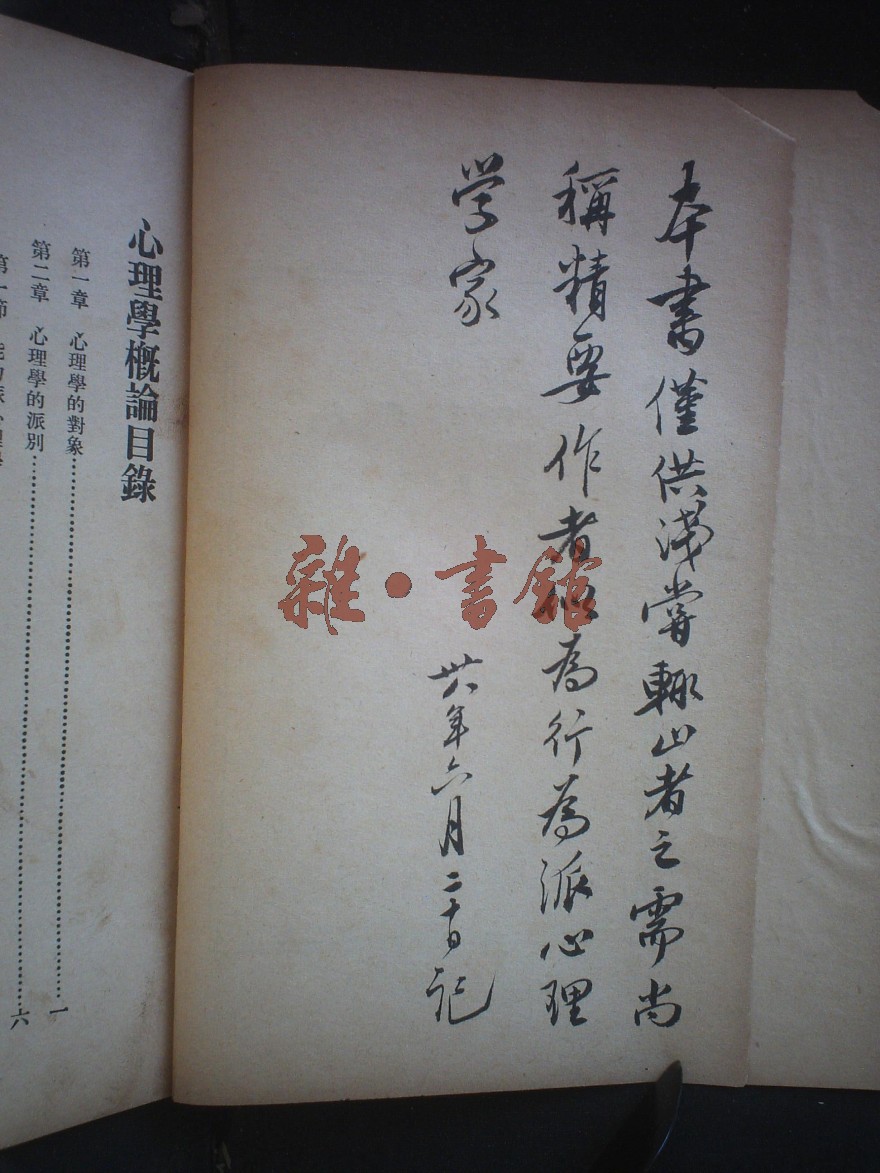 本書僅供淺嘗輒止者之需尚
稱精要作者似為行為派心理
学家
卅六年六月二十日記
雜·書館
心理學概論目錄
第一章 心理學的對象…………一
第二章 心理學的派別…………六